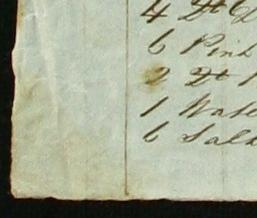 4 Do
6 Pink
2 Do
1 Wate
6 Sala